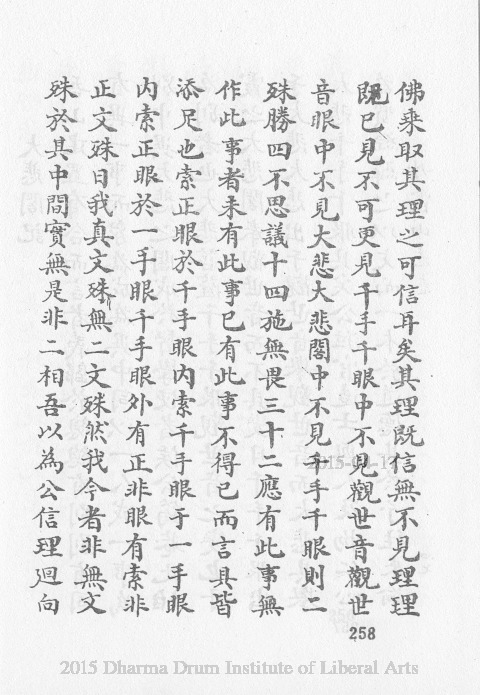 佛乘取其理之可信耳矣其理既信無不見理理
既已見不可更見千手千眼中不見觀世音觀世
音眼中不見大悲大悲閣中不見千手千眼則二
殊勝四不思議十四施無畏三十二應有此事無
作此事者未有此事已有此事不得已而言具皆
添足也索正眼於千手眼內索千手眼于一手眼
內索正眼於一手眼千手眼外有正非眼有索非
正文殊曰我真文殊無二文殊然我今者非無文
殊於其中間實無是非二相吾以為公信理迴向
258
2015 Dharma Drum Institute of Liberal Arts